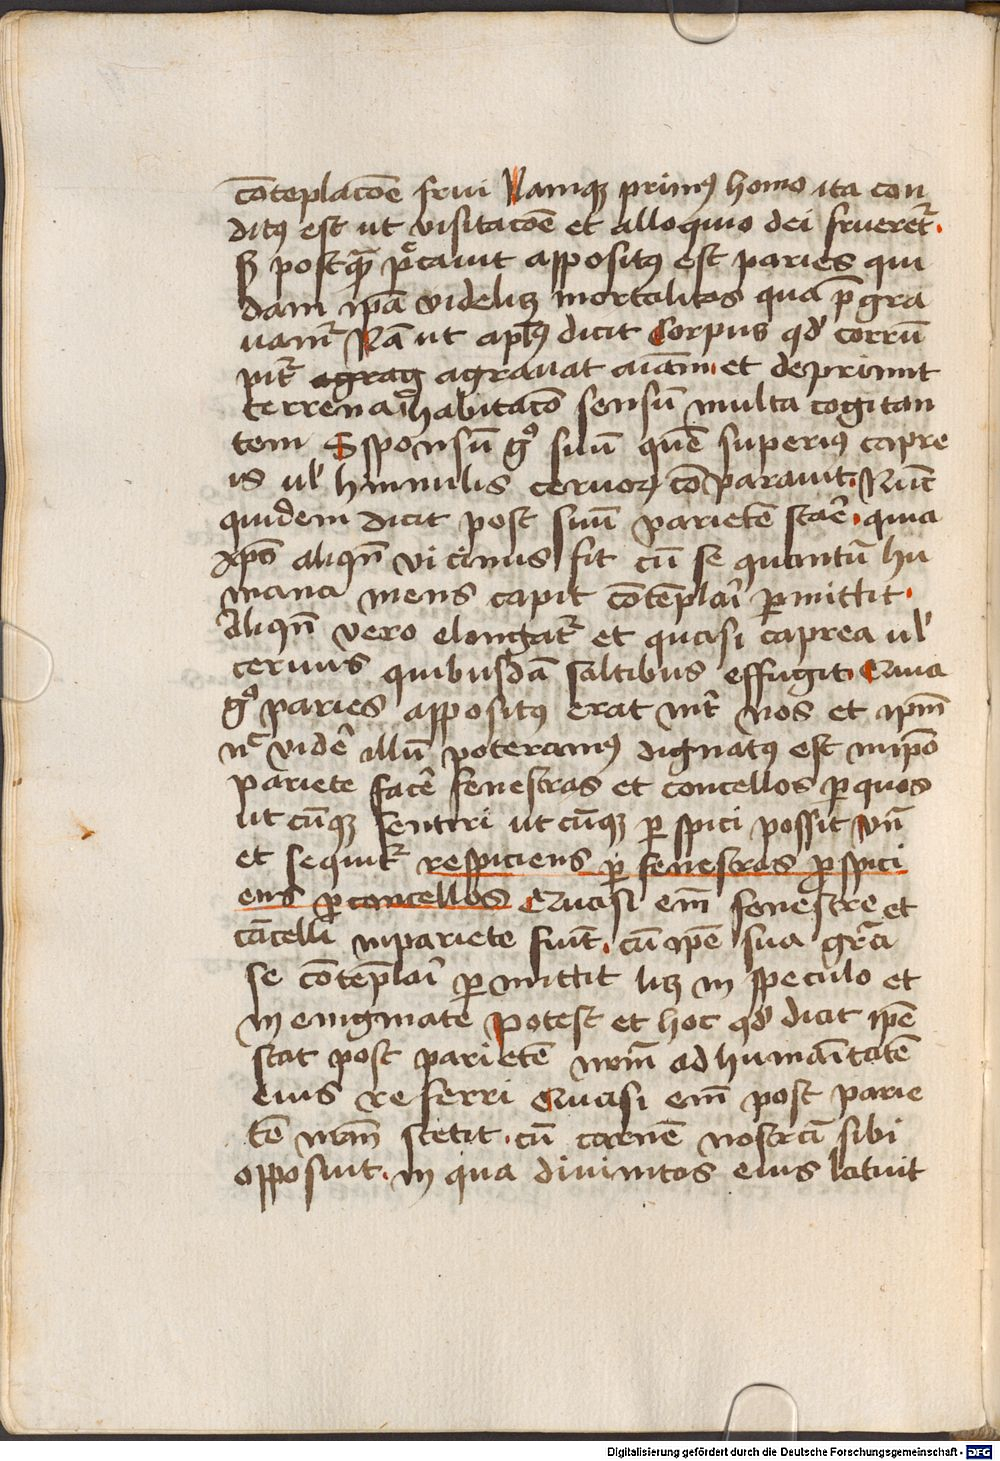 cōteplacōe frui Namqꝫ primꝰ homo ita con
ditꝰ est ut visitacōe et alloquio dei frueret᷑.
Sꝫ postqᷓ pͨcauit appositꝰ est paries qui
dam ip̄a videlicꝫ mortalitas qua p̄gra
uam᷑ Nā ut apl̄s dicit Corpus qd̕ corrū
pit᷑ agrag agrauat aīam. et deprimit
terrena habitacō sensū multa cogitan
tem Sponsū gͦ suū quē superiꝰ capre
is ul̕ hinnulis ceruoꝝ cōparauit. Nūc
quidem dicit post suū parietē stare̕. quia
xp̄s aliqn̄ vicinus fit cū se quantū hu
mana mens capit cōtēplari̕ ꝑmittit.
Aliqn̄ vero elongat᷑ et quasi caprea ul̕
ceruus quibusdā saltibus effugit. Quia
gͦ paries appositꝰ erat int̕ nos et ip̄m
nͨ vidē̕ illū poteramꝰ dignatꝰ est in ip̄o
pariete facē̕ fenestras et concellos ꝑ quos
ut cūqꝫ sentiri ut cūqꝫ ꝑspici possit Vn̄
et sequit᷑ respiciens ꝑ fenestras ꝓspici
ens ꝑ concellos Quasi em̄ fenestre et
cācelli in pariete sūnt. cū ip̄e sua gr̄a
se cōtēplari̕ ꝑmittit licꝫ in speculo et
in enigmate Potest et hoc qd̕ dicit ip̄e
stat post parietē nr̄m ad humanītatē
eius referri Quasi em̄ post parie
tē nr̄m stetit. cū carnē nostrā sibi
opposuit. in qua diuinitas eius latuit
Digitalisierung gefördert durch die Deutsche Forschungsgemeinschaft - DFG